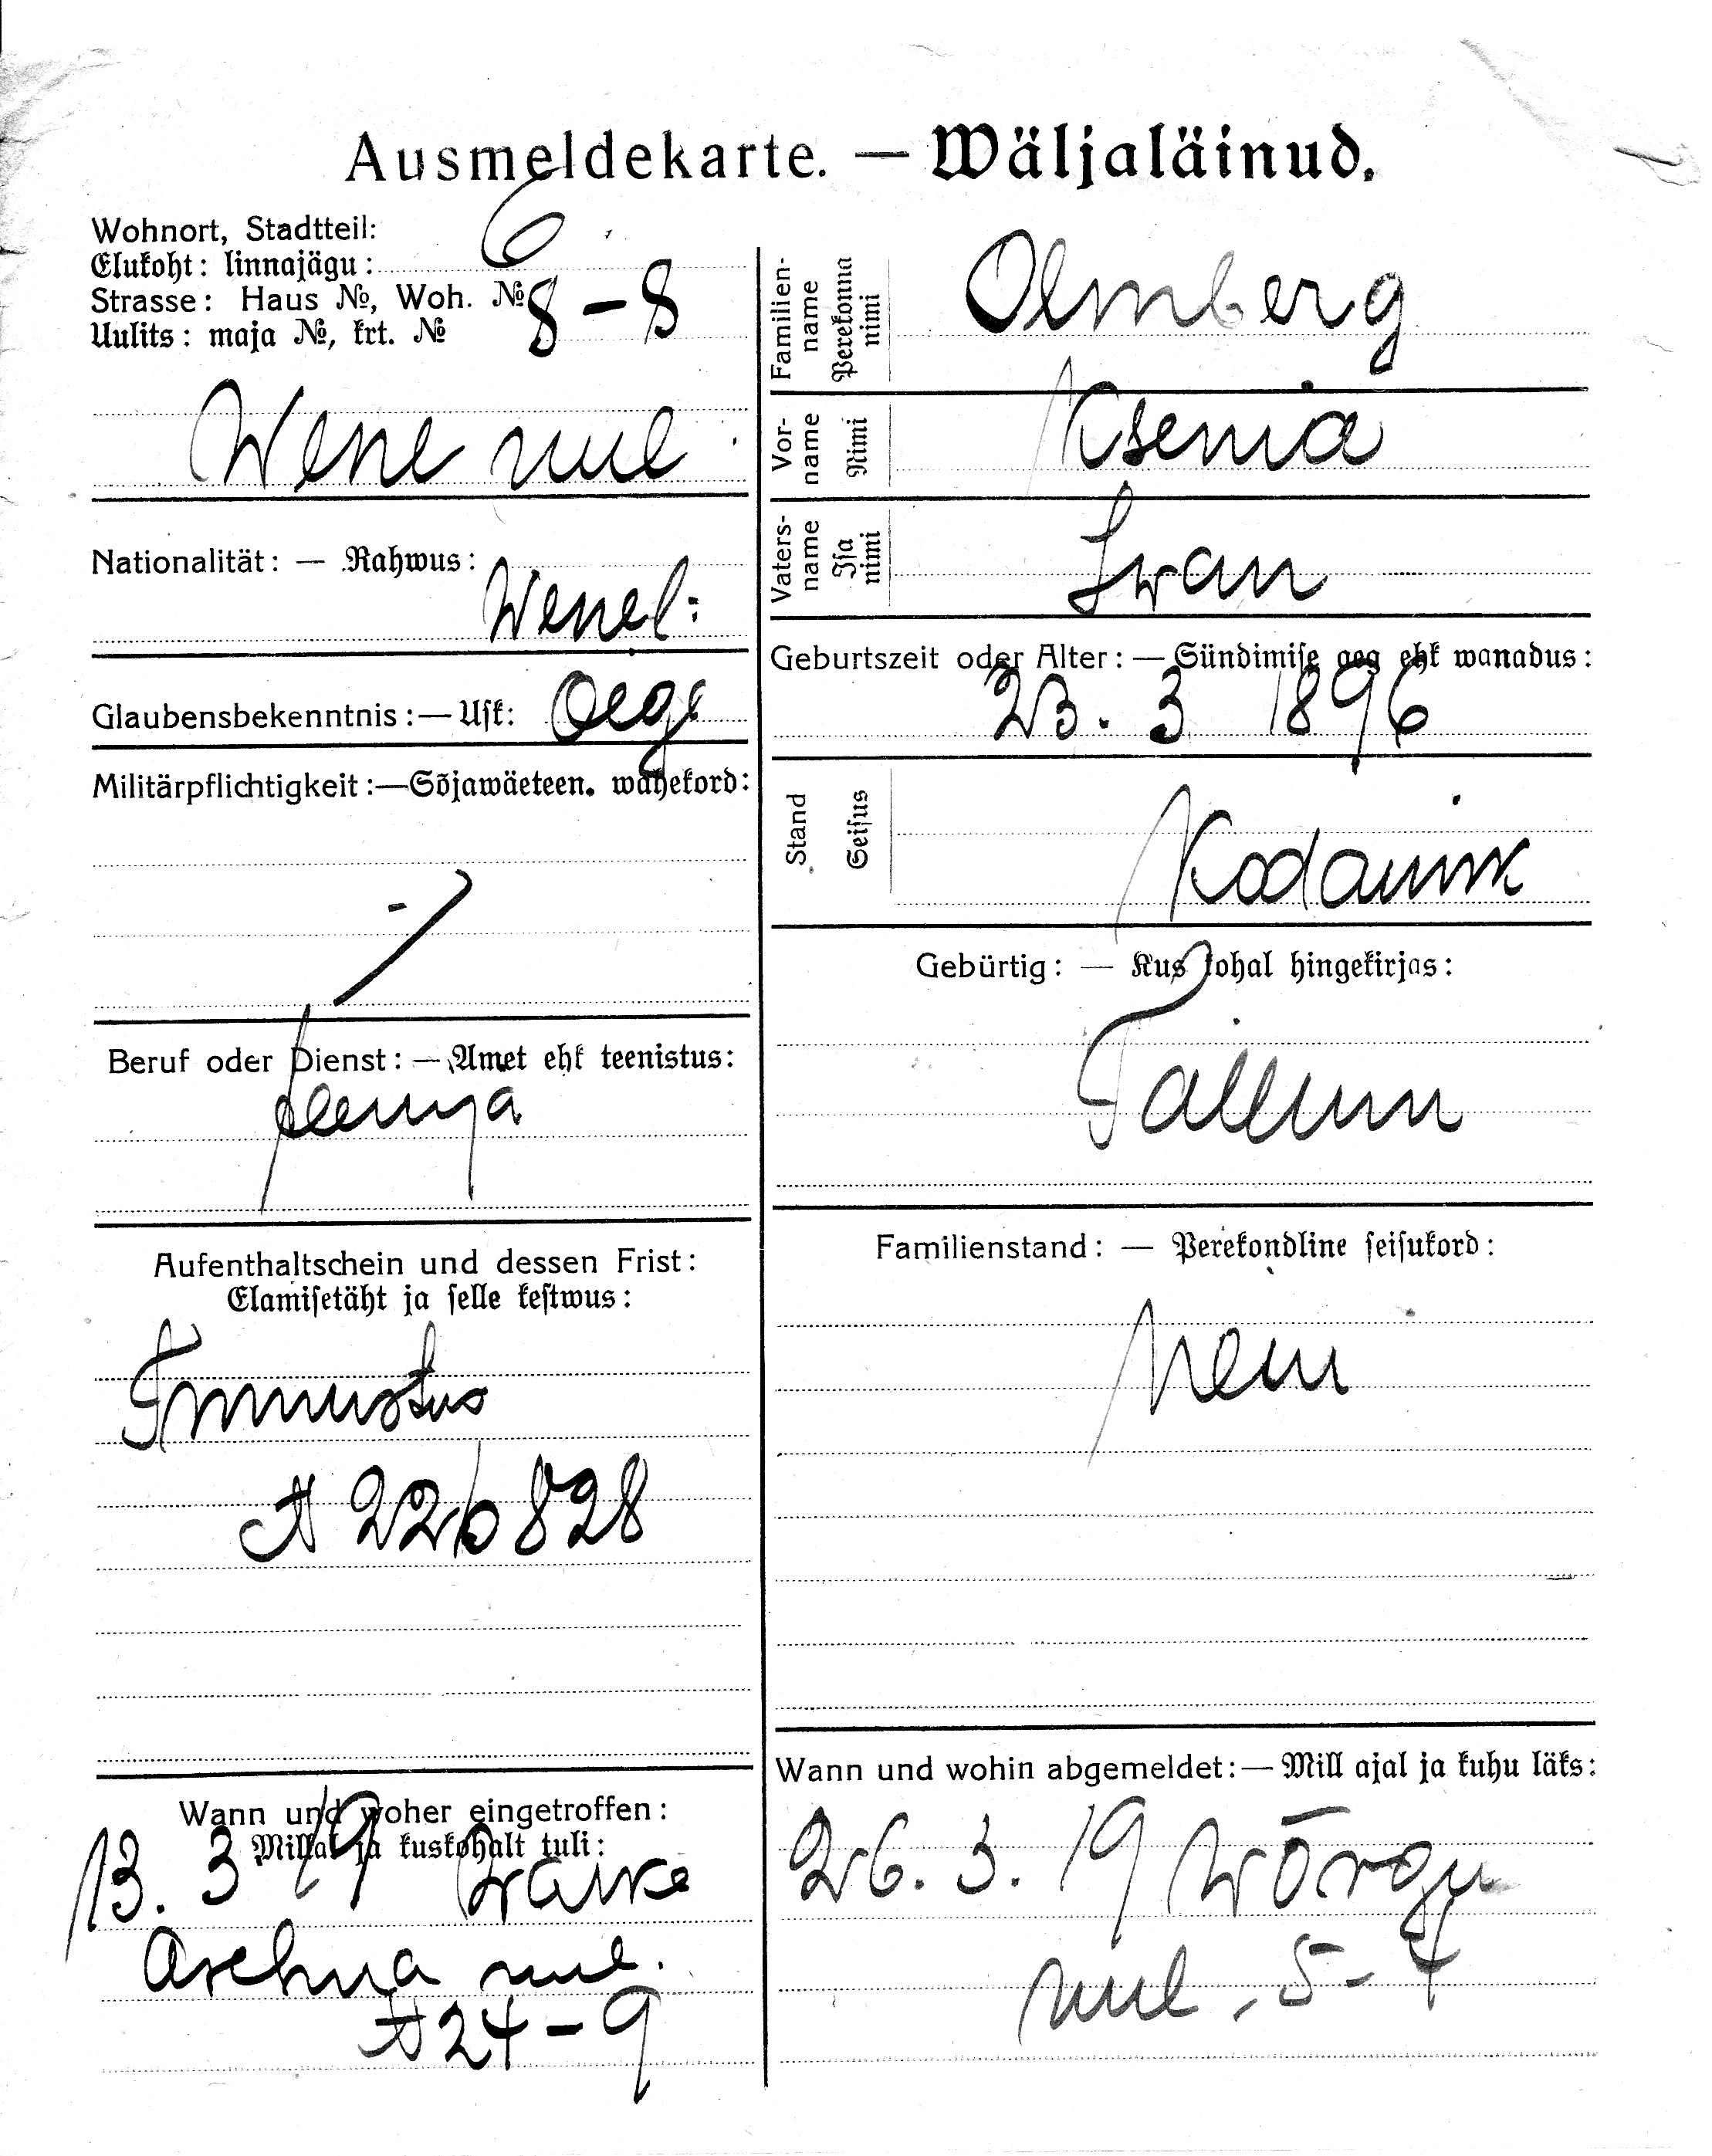 Ausmeldekarte. — Wäljaläinud.
Wohnort, Stadtteil:
Elukoht: linnajägu: 6
Strasse: Haus №, Woh. №
Uulits: maja №, krt. № 8-8
Wene uul
Nationalität: — Rahwus:
Wenel:
Glaubensbekenntnis: — Usk: Oige
Militärpflichtigkeit: — Sõjawäeteen. wahekord:
Beruf oder Dienst: — Amet ehk teenistus:
Aufenthaltschein und dessen Frist:
Elamisetäht ja selle kestwus:
Tunnustus
A 226828
Wann und woher eingetroffen:
Millal ja kuskohalt tuli:
13. 3 19 Waike
uul.
A 24-9
Familien-name Perekonna nimi Olmberg
Vor-name Nimi Ksenia
Vaters-name Isa nimi Iwan
Geburtszeit oder Alter: — Sündimise aeg ehk wanadus:
23. 3 1896
Stand Seisus Kodanik
Gebürtig: — Kus kohal hingekirjas:
Tallinn
Familienstand: — Perekondline seisukord:
Neiu
Wann und wohin abgemeldet: — Mill ajal ja kuhu läks:
26. 3. 19 Wōrgu
uul. 5-4